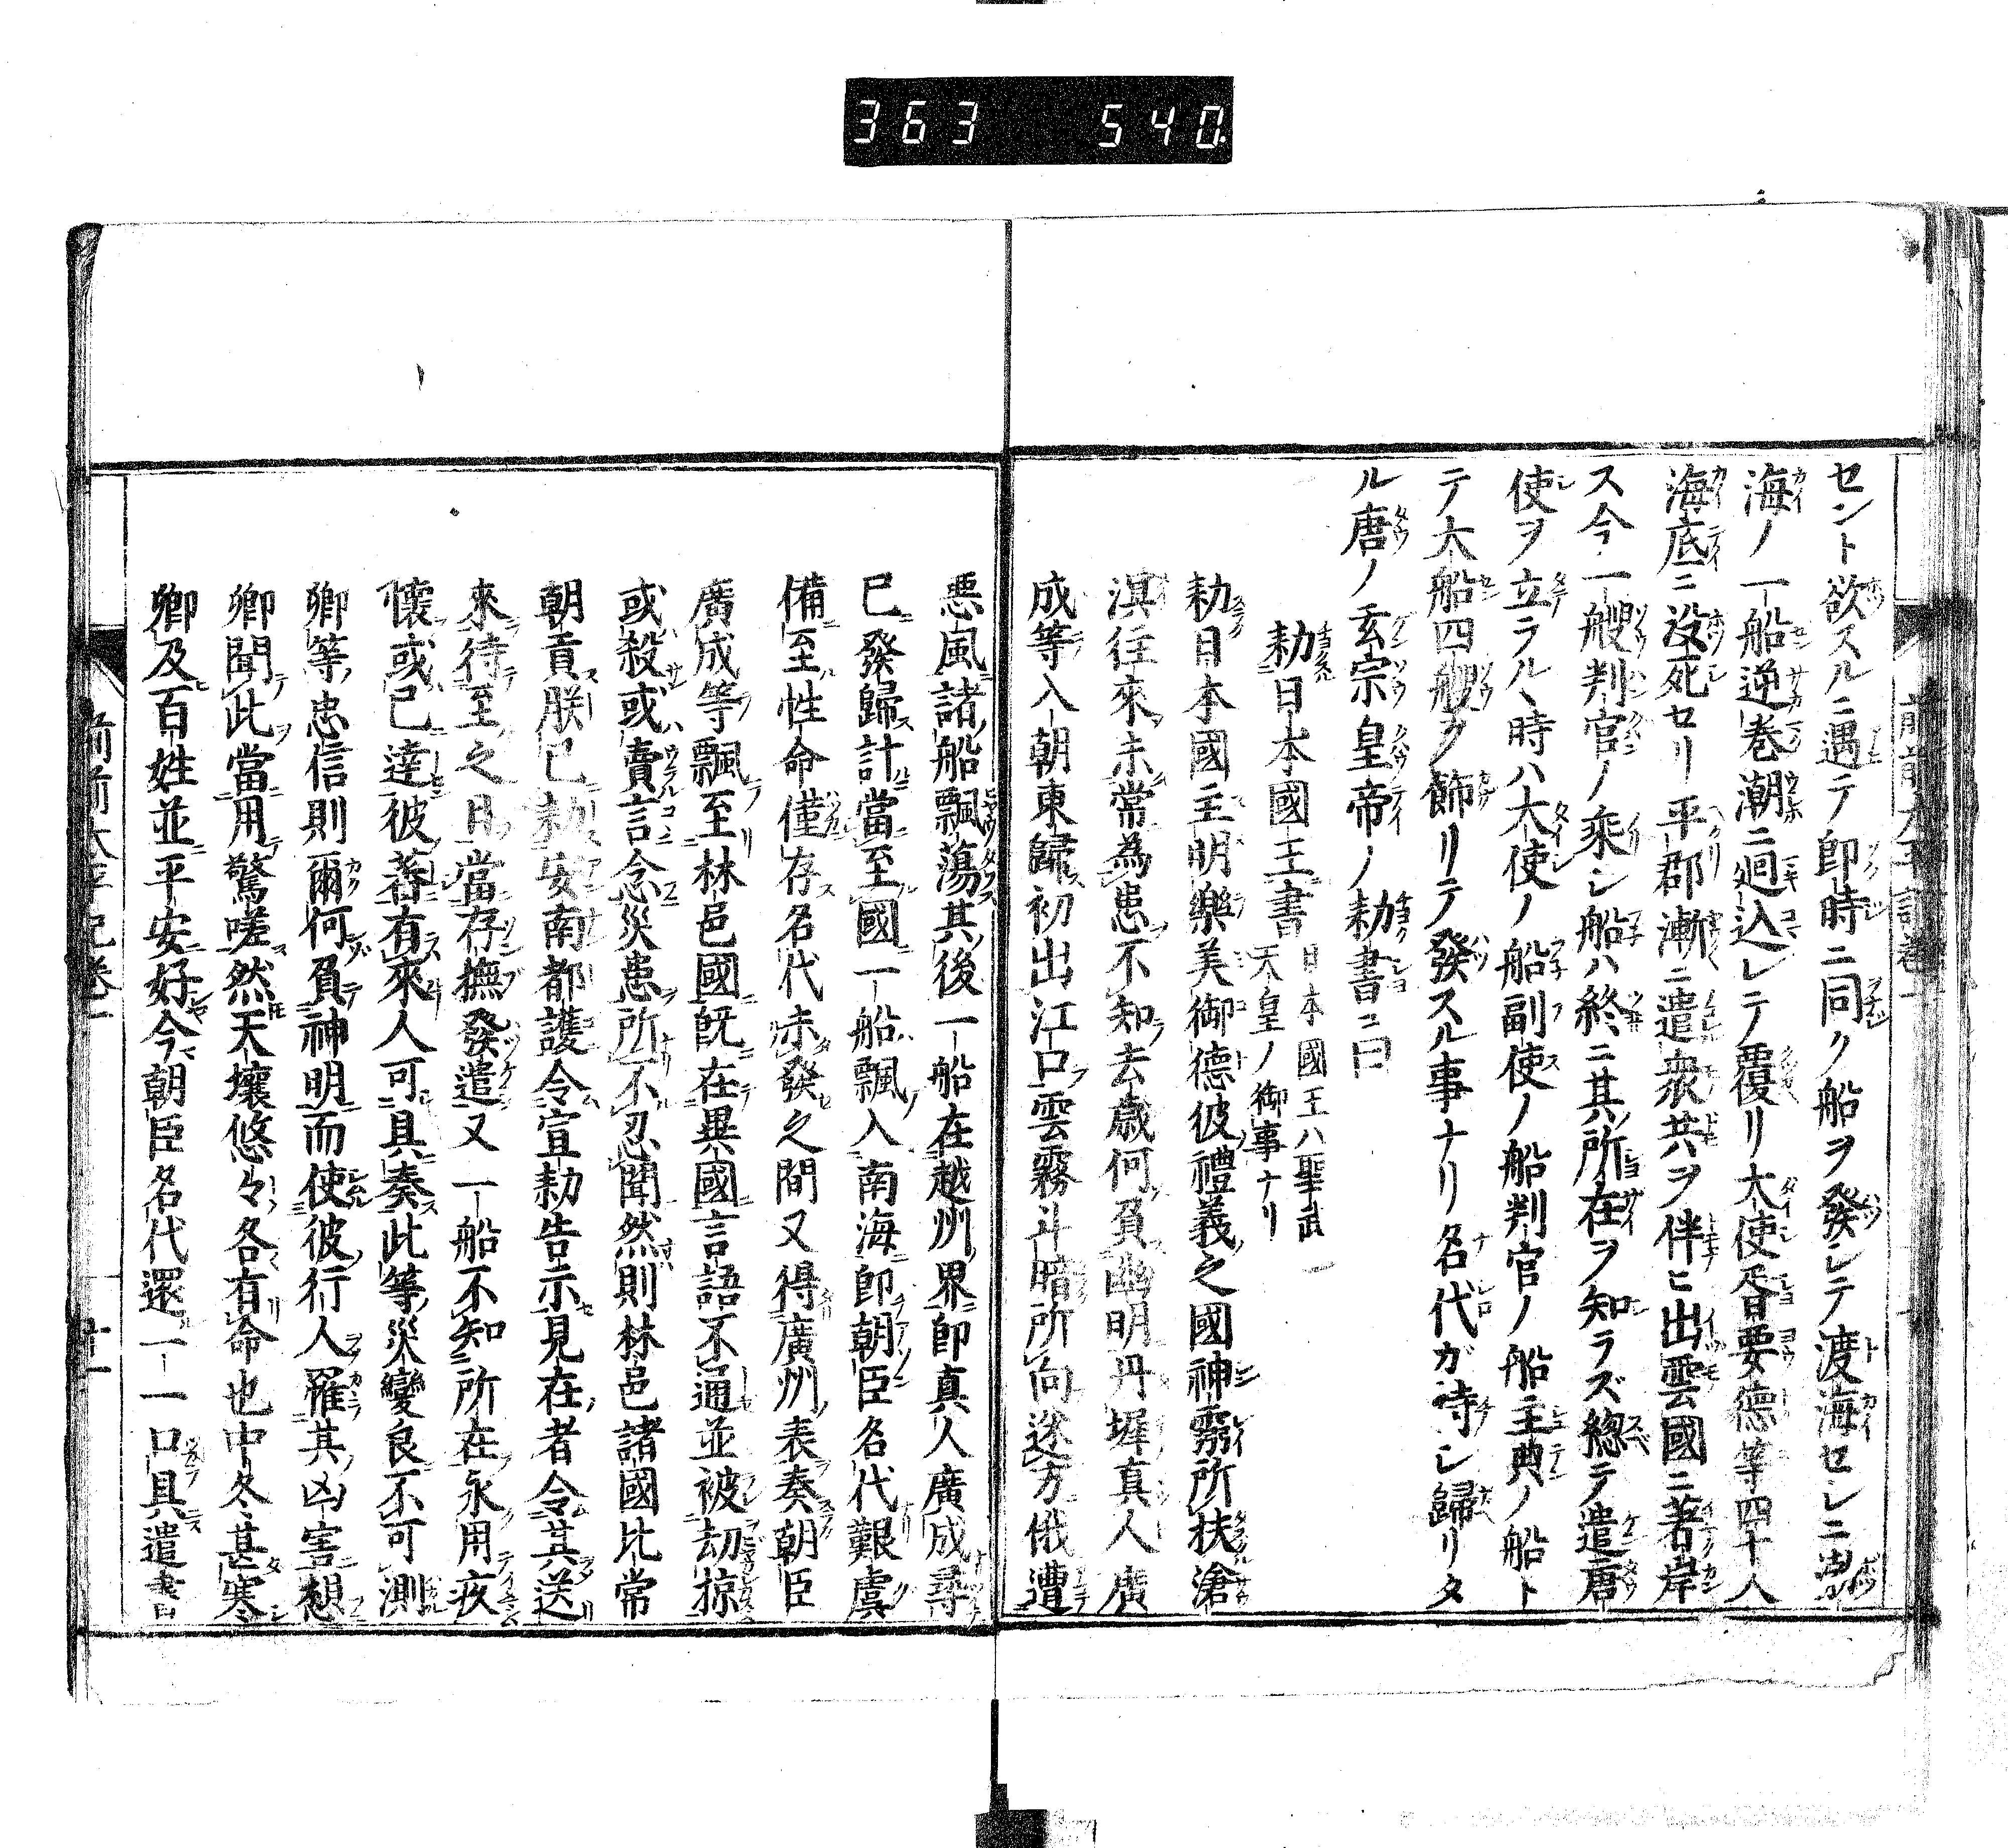 363 540
セント欲スルニ遇テ即時ニ同ク船ヲ發シテ渡海セシニ渤
海ノ一船逆巻潮ニ廻込レテ覆リ大使胥要德等四十人
海底ニ没死セリ平郡漸ニ遣衆共ヲ伴ヒ出雲國ニ著岸
ス今一艘判官ノ乘シ船ハ終ニ其所在ヲ知ラズ總テ遣唐
使ヲ立ラルヽ時ハ大使ノ船副使ノ船判官ノ船主典ノ船ト
テ大船四艘ヲ飾リテ發スル事ナリ名代ガ待シ歸リタ
ル唐ノ玄宗皇帝ノ勅書ニ曰
勅日本國王書 日本國王ハ聖武
天皇ノ御事ナリ
勅日本國王明樂美御德彼禮義之國神靈所扶滄
溟往來未常為患不知去歳何負幽明丹墀真人廣
成等入朝東歸初出江口雲霧斗暗所向迷方俄遭
悪風諸船飄蕩其後一船在越州界即真人廣成尋
已發歸計當至國一船飄入南海即朝臣名代艱虞
備至性命僅存名代未發之間又得廣州表奏朝臣
廣成等飄至林邑國既在異國言語不通並被劫掠
或殺或賣言念災患所不忍聞然則林邑諸國比常
朝貢朕已勅安南都護令宣勅告示見在者令其送
來待至之日當存撫發遣又一船不知所在永用疚
懷或已達彼蕃有來人可具奏此等災變良不可測
卿等忠信則爾何負神明而使彼行人罹其凶害想
卿聞此當用驚嗟然天壤悠々各有命也中冬甚寒
卿及百姓並平安好今朝臣名代還一一口具遣書
前前太平記巻一
十一